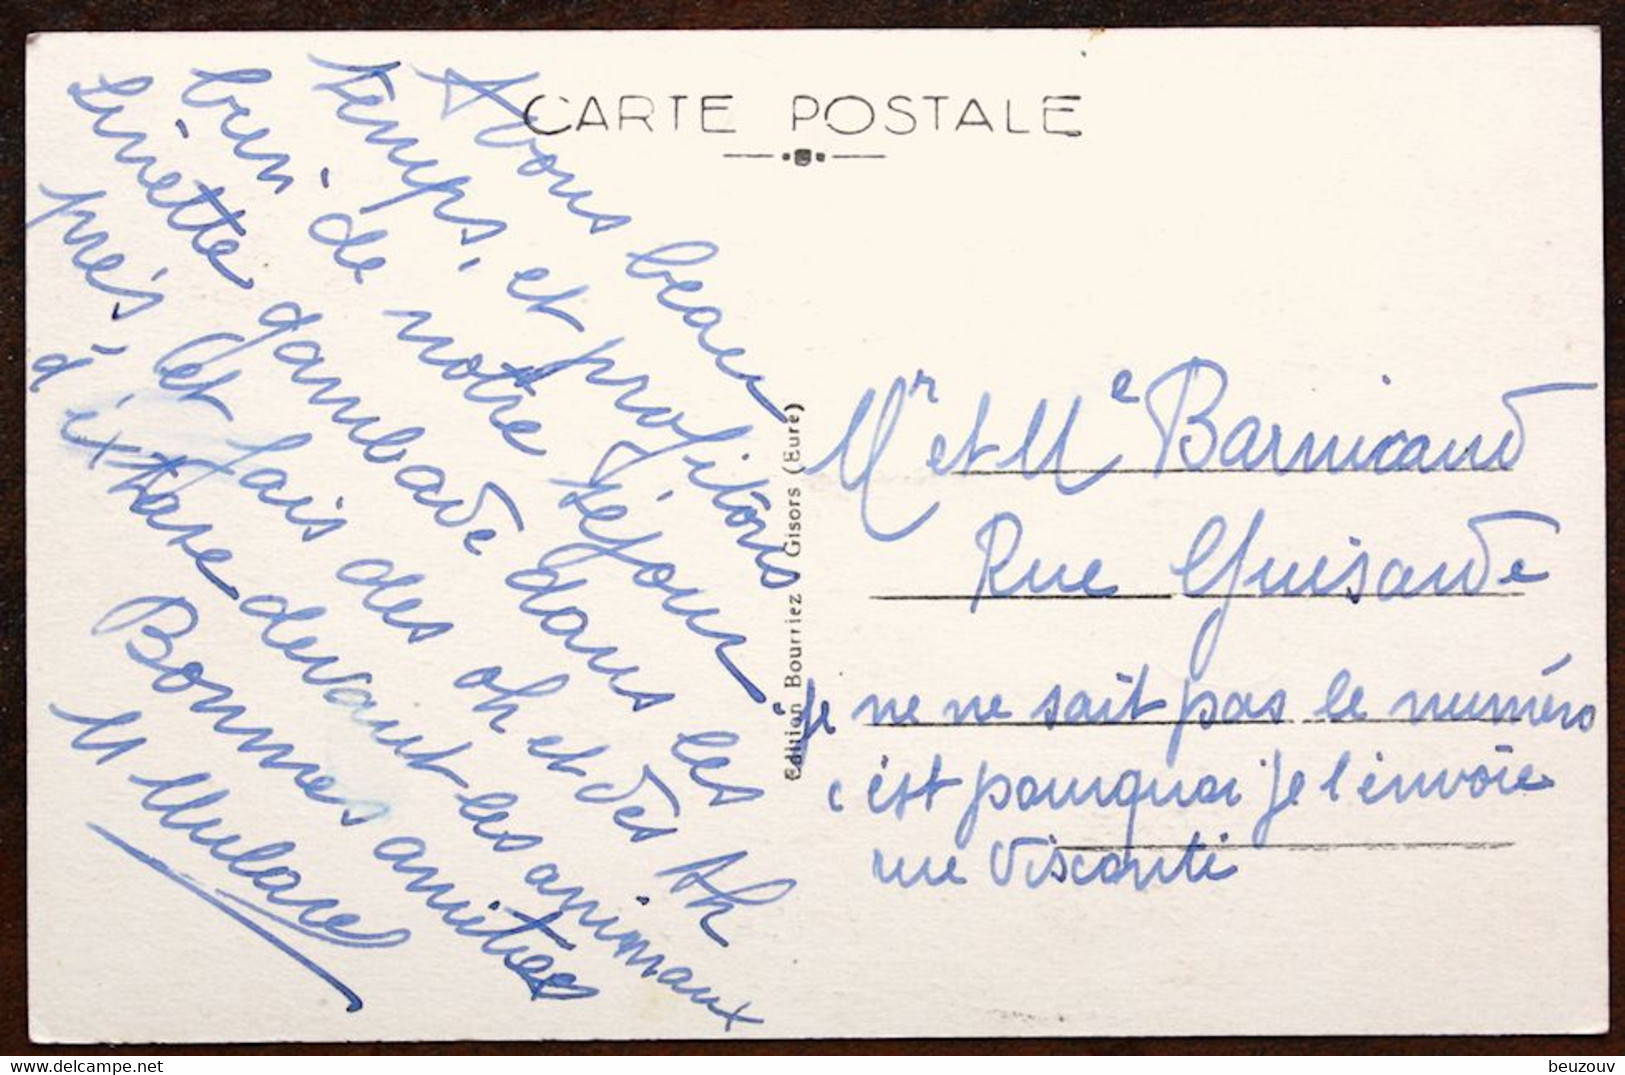 CARTE POSTALE
Avons beau
temps, et profitons
bien, de notre séjour
Linette gambade dans les
près, et fais des oh et des ah
d'extase devant les animaux
Bonnes amitiées
M
Edition Bourriez Gisors (Eure)
Mr et Me Barnicaud
Rue Guisarde
je ne ne sait pas le numéro
c'est pourquoi je l'envoie
rue Visconti
www.delcampe.net
beuzouv